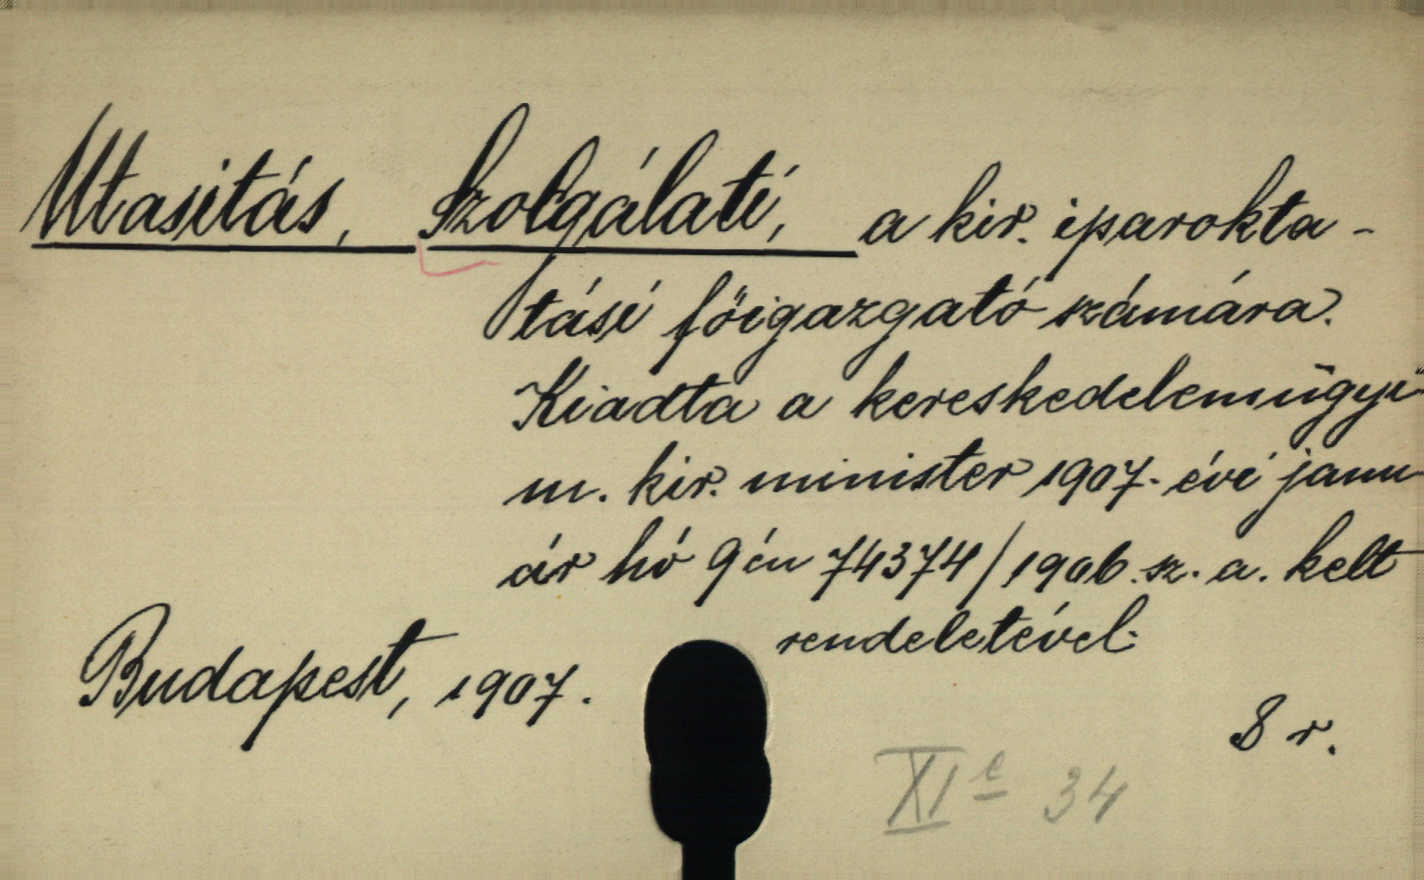 Utasitás, Szolgálati, a kir. iparokta-
tási főigazgató számára.
Kiadta a kereskedelemügyi
m. kir. minister 1907. évi janu-
ár hó 9én 74374/1906. sz. a. kelt
rendeletével.
Budapest, 1907.
8 r.
XI c 34